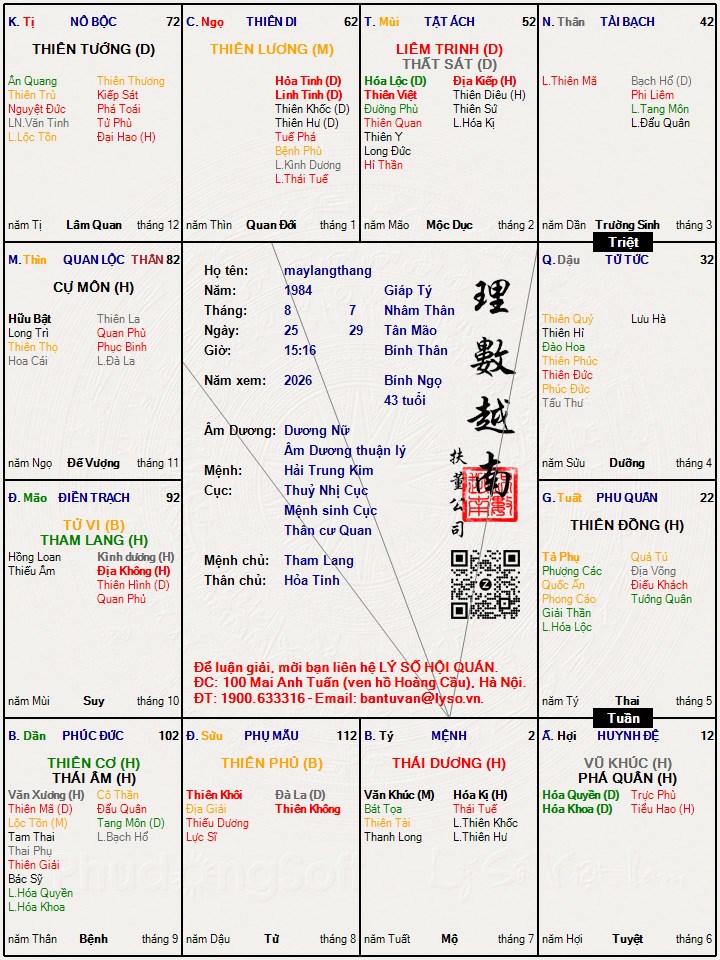 K. Tị NÔ BỘC 72
THIÊN TƯỚNG (D)
Ân Quang Thiên Thương
Thiên Trù Kiếp Sát
Nguyệt Đức Phá Toái
LN.Văn Tinh Tử Phù
L.Lộc Tồn Đại Hao (H)
năm Tị Lâm Quan tháng 12
C. Ngọ THIÊN DI 62
THIÊN LƯƠNG (M)
Hỏa Tinh (D)
Linh Tinh (D)
Thiên Khốc (D)
Thiên Hư (D)
Tuế Phá
Bệnh Phù
L.Kình Dương
L.Thái Tuế
năm Thìn Quan Đới tháng 1
T. Mùi TẬT ÁCH 52
LIÊM TRINH (D)
THẤT SÁT (D)
Hóa Lộc (D) Địa Kiếp (H)
Thiên Việt Thiên Diêu (H)
Đường Phù Thiên Sứ
Thiên Quan L.Hóa Kị
Thiên Y
Long Đức
Hỉ Thần
năm Mão Mộc Dục tháng 2
N. Thân TÀI BẠCH 42
L.Thiên Mã Bạch Hổ (D)
Phi Liêm
L.Tang Môn
L.Đẩu Quân
năm Dần Trường Sinh tháng 3
Triệt
M. Thìn QUAN LỘC THÂN 82
CỰ MÔN (H)
Hữu Bật Thiên La
Long Trì Quan Phù
Thiên Thọ Phục Binh
Hoa Cái L.Đà La
năm Ngọ Đế Vượng tháng 11
Họ tên: maylangthang
Năm: 1984 Giáp Tý
Tháng: 8 7 Nhâm Thân
Ngày: 25 29 Tân Mão
Giờ: 15:16 Bính Thân
Năm xem: 2026 Bính Ngọ
43 tuổi
Âm Dương: Dương Nữ
Âm Dương thuận lý
Mệnh: Hải Trung Kim
Cục: Thuỷ Nhị Cục
Mệnh sinh Cục
Thân cư Quan
Mệnh chủ: Tham Lang
Thân chủ: Hỏa Tinh
理數越南
扶董公司
Để luận giải, mời bạn liên hệ LÝ SỐ HỘI QUÁN.
ĐC: 100 Mai Anh Tuấn (ven hồ Hoàng Cầu), Hà Nội.
ĐT: 1900.633316 - Email: bantuvan@lyso.vn.
Q. Dậu TỬ TỨC 32
Thiên Quý Lưu Hà
Thiên Hỉ
Đào Hoa
Thiên Phúc
Thiên Đức
Phúc Đức
Tấu Thư
năm Sửu Dưỡng tháng 4
Đ. Mão ĐIỀN TRẠCH 92
TỬ VI (B)
THAM LANG (H)
Hồng Loan Kình dương (H)
Thiếu Âm Địa Không (H)
Thiên Hình (D)
Quan Phủ
năm Mùi Suy tháng 10
G. Tuất PHU QUÂN 22
THIÊN ĐỒNG (H)
Tả Phụ Quả Tú
Phượng Các Địa Võng
Quốc Ấn Điếu Khách
Phong Cáo Tướng Quân
Giải Thần
L.Hóa Lộc
năm Tý Thai tháng 5
Tuần
B. Dần PHÚC ĐỨC 102
THIÊN CƠ (H)
THÁI ÂM (H)
Văn Xương (H) Cô Thần
Thiên Mã (D) Đẩu Quân
Lộc Tồn (M) Tang Môn (D)
Tam Thai L.Bạch Hổ
Thai Phụ
Thiên Giải
Bác Sỹ
L.Hóa Quyền
L.Hóa Khoa
năm Thân Bệnh tháng 9
Đ. Sửu PHỤ MẪU 112
THIÊN PHỦ (B)
Thiên Khôi Đà La (D)
Địa Giải Thiên Không
Thiếu Dương
Lực Sĩ
năm Dậu Tử tháng 8
B. Tý MỆNH 2
THÁI DƯƠNG (H)
Văn Khúc (M) Hóa Kị (H)
Bát Tọa Thái Tuế
Thiên Tài L.Thiên Khốc
Thanh Long L.Thiên Hư
năm Tuất Mộ tháng 7
Ấ. Hợi HUYNH ĐỆ 12
VŨ KHÚC (H)
PHÁ QUÂN (H)
Hóa Quyền (D) Trực Phù
Hóa Khoa (D) Tiểu Hao (H)
năm Hợi Tuyệt tháng 6